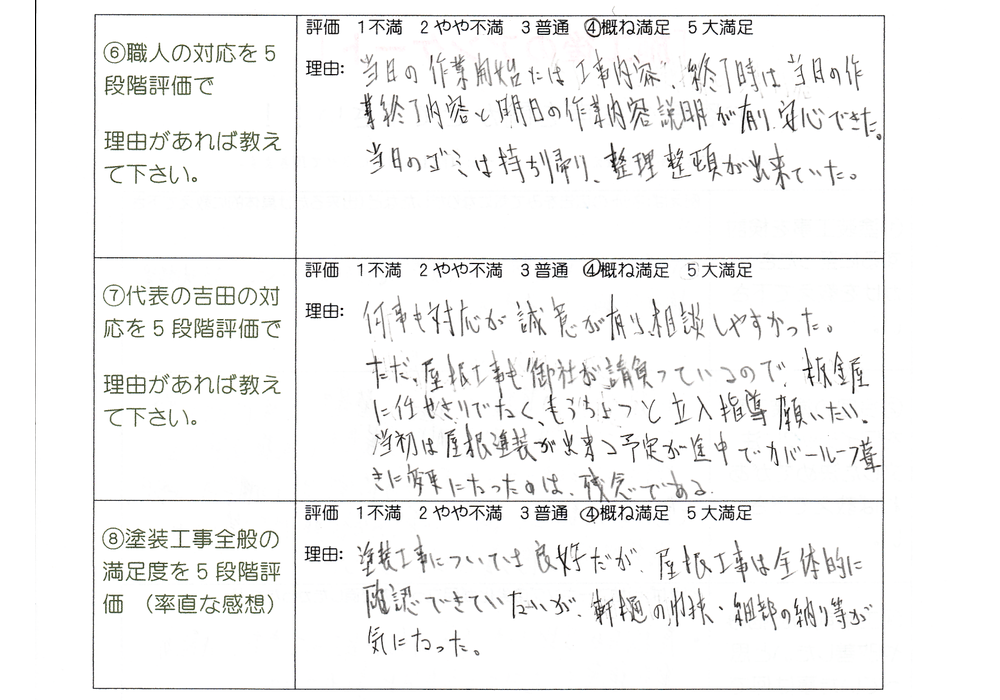 ⑥職人の対応を5
段階評価で
理由があれば教え
て下さい。
評価 1不満 2やや不満 3普通 ④概ね満足 5大満足
理由:当日の作業開始には工事内容、終了時は当日の作
業終了内容と明日の作業内容説明が有り、安心できた。
当日のゴミは持ち帰り、整理整頓が出来ていた。
⑦代表の吉田の対
応を5段階評価で
理由があれば教え
て下さい。
評価 1不満 2やや不満 3普通 ④概ね満足 5大満足
理由:何事も対応が誠意が有り、相談しやすかった。
ただ、屋根工事も御社が請負っているので、板金屋
に任せきりでなく、もうちょっと立入指導願いたい。
当初は屋根塗装が出来る予定が途中でカバールーフ葺
きに変更になったのは、残念である。
⑧塗装工事全般の
満足度を5段階評
価 (率直な感想)
評価 1不満 2やや不満 3普通 ④概ね満足 5大満足
理由:塗装工事については良好だが、屋根工事は全体的に
確認できていないが、軒樋の巾狭・細部の納り等が
気になった。